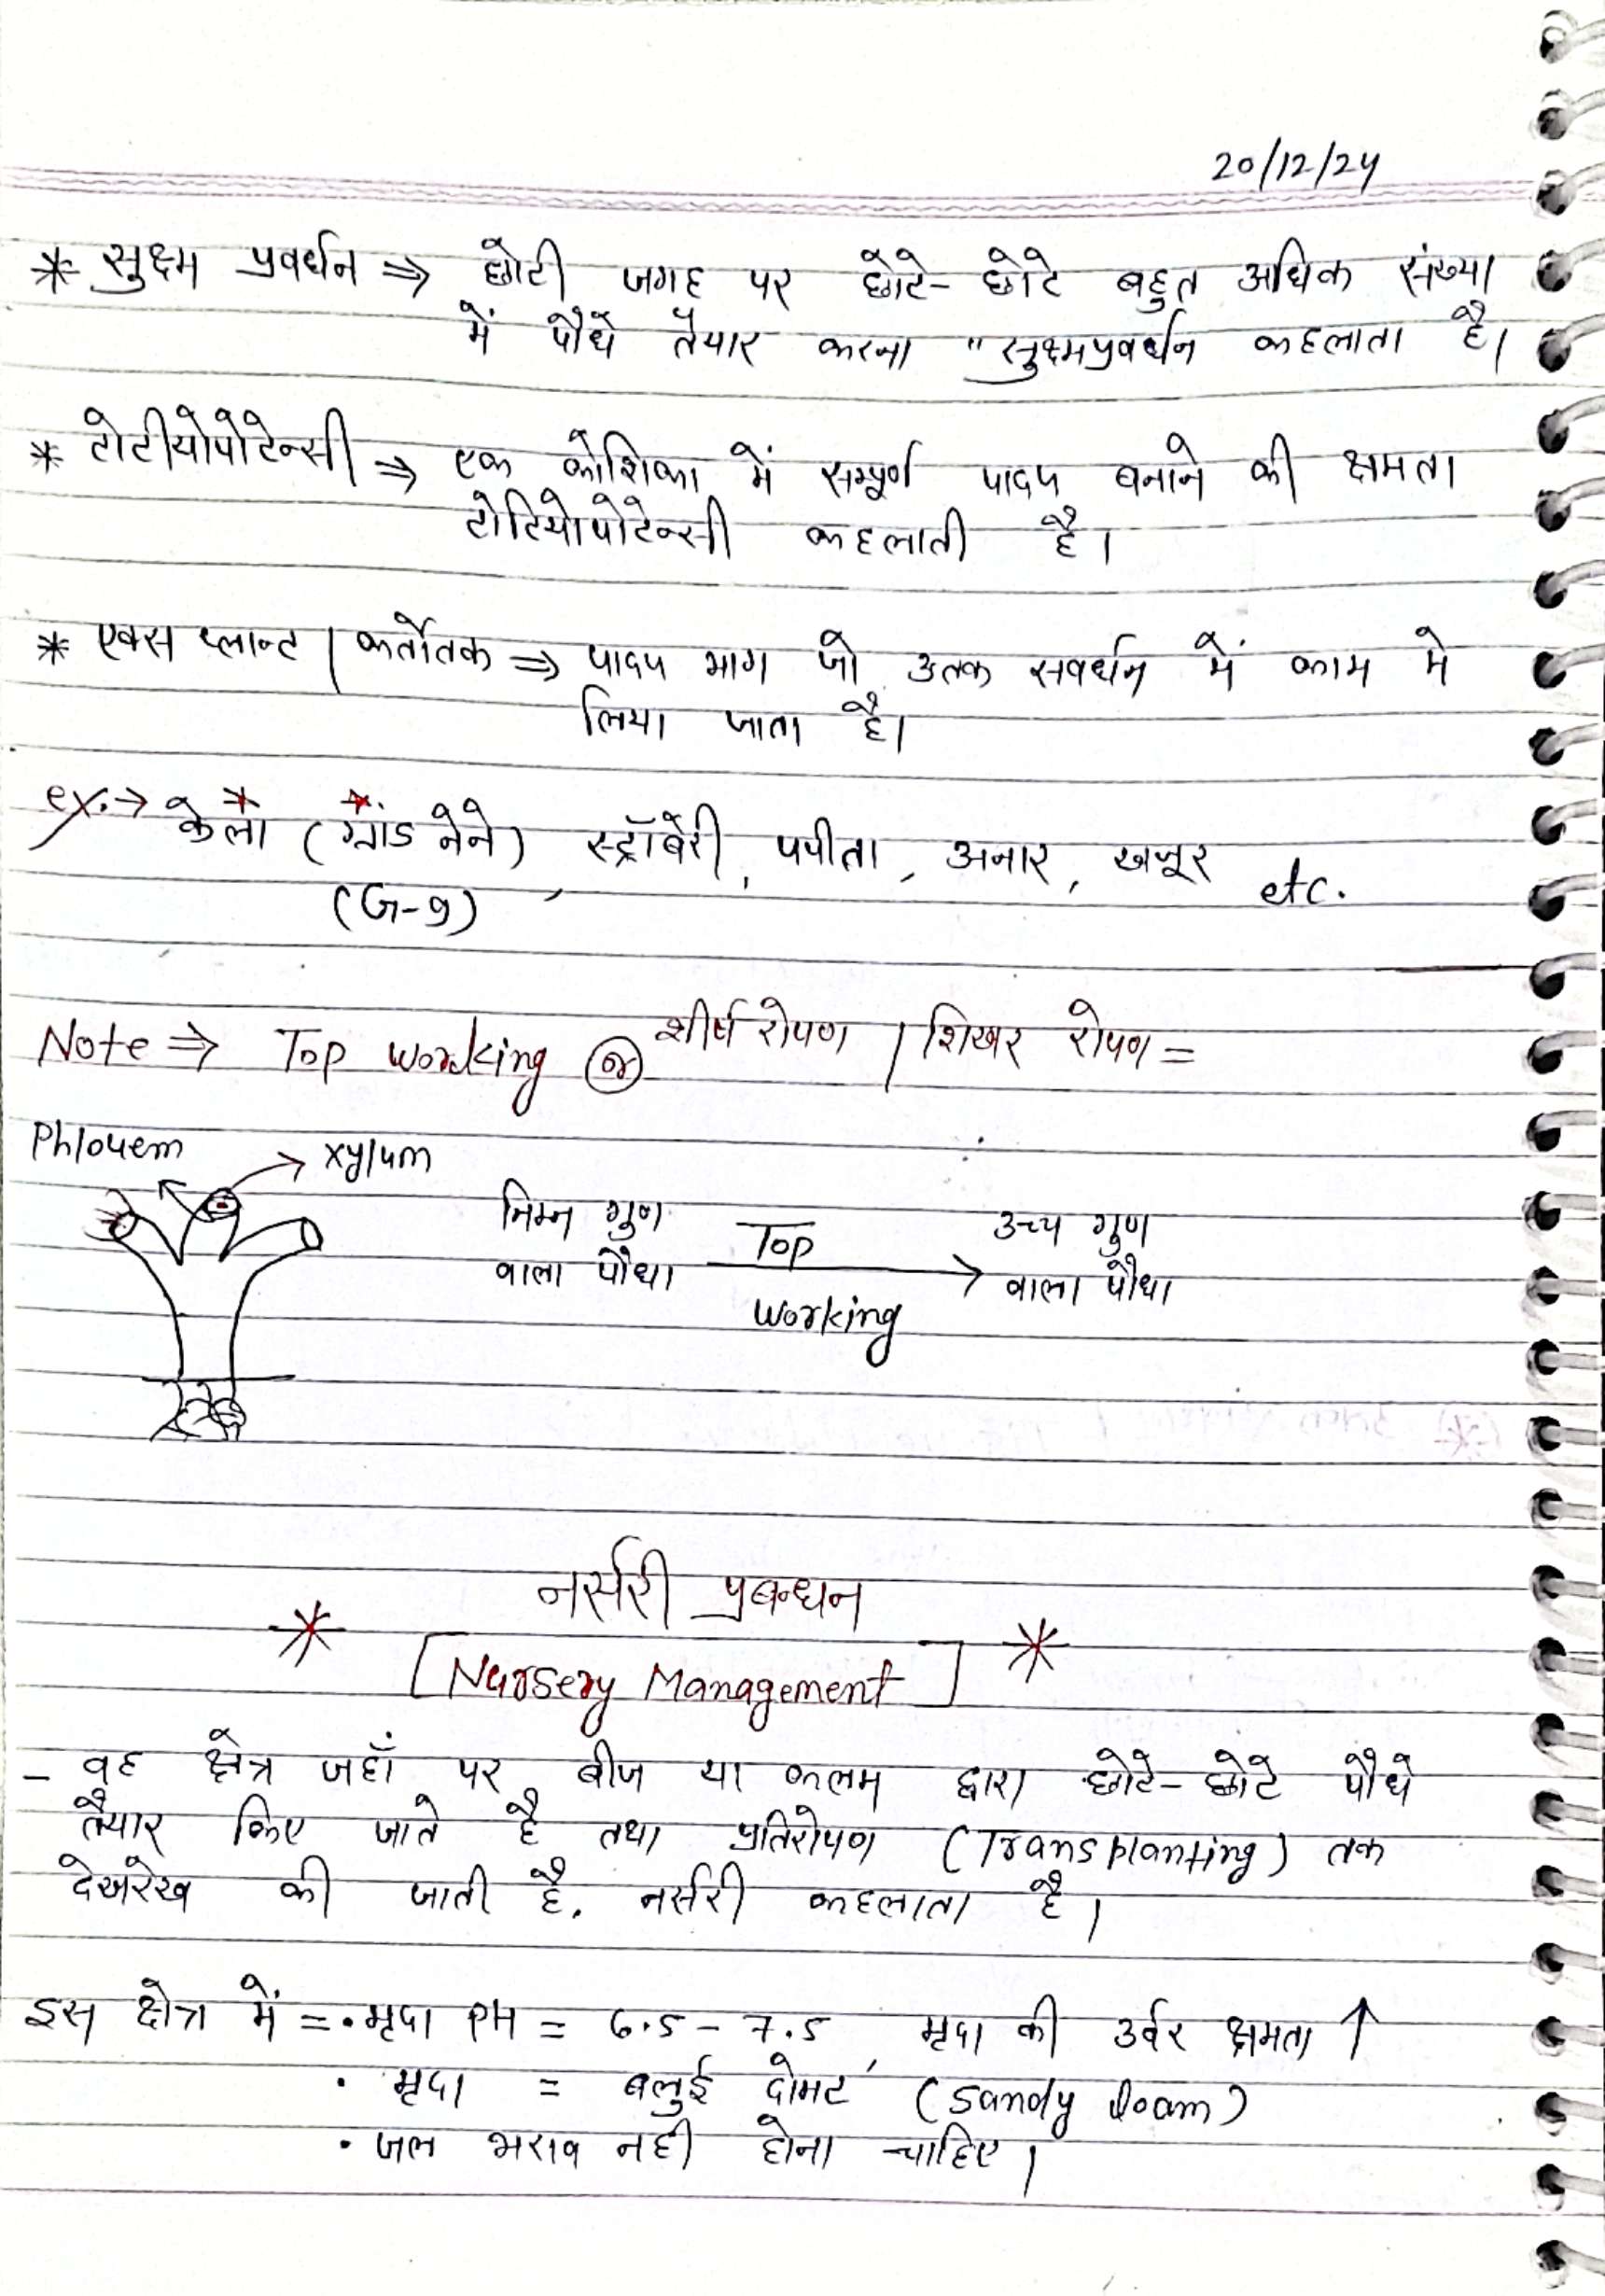 20/12/24
* सुक्ष्म प्रवर्धन ⇒ छोटी जगह पर छोटे-छोटे बहुत अधिक संख्या
में पौधे तैयार करना "सुक्ष्मप्रवर्धन कहलाता है।
* टोटीयोपोटेन्सी ⇒ एक कोशिका में सम्पूर्ण पादप बनाने की क्षमता
टोटियोपोटेन्सी कहलाती है।
* एक्स प्लान्ट / कर्तोतक ⇒ पादप भाग जो उतक सवर्धन में काम मे
लिया जाता है।
ex. → केला (ग्रांड नेने) स्ट्रॉबेरी, पपीता, अनार, खजूर etc.
(G-9)
Note ⇒ Top working or शीर्ष रोपण / शिखर रोपण =
Phlouem → xylum
निम्न गुण वाला पौधा Top working → उच्च गुण वाला पौधा
नर्सरी प्रबन्धन
* [Nursery Management] *
- वह क्षेत्र जहाँ पर बीज या कलम द्वारा छोटे-छोटे पौधे
तैयार किए जाते है तथा प्रतिरोपण (Transplanting) तक
देखरेख की जाती है, नर्सरी कहलाता है।
इस क्षेत्र में = • मृदा PH = 6.5 - 7.5, मृदा की उर्वर क्षमता ↑
• मृदा = बलुई दोमट (Sandy loam)
• जल भराव नही होना चाहिए।